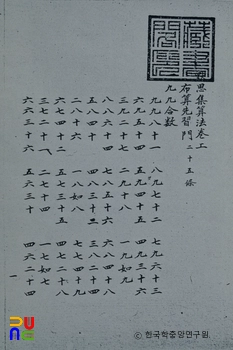 藏書閣印
思集算法卷上
布算先習門 二十五條
九九合數
九九八十一 八九七十二 七九六十三
六九五十四 五九四十五 四九三十六
三九二十七 二九一十八 一九如九
八八六十四 七八五十六 六八四十八
五八四十 四八三十二 三八二十四
二八十六 一八如八 七七四十九
六七四十二 五七三十五 四七二十八
三七二十一 二七十四 一七如七
六六三十六 五六三十 四六二十四
一
PUNC
ⓒ 한국학중앙연구원